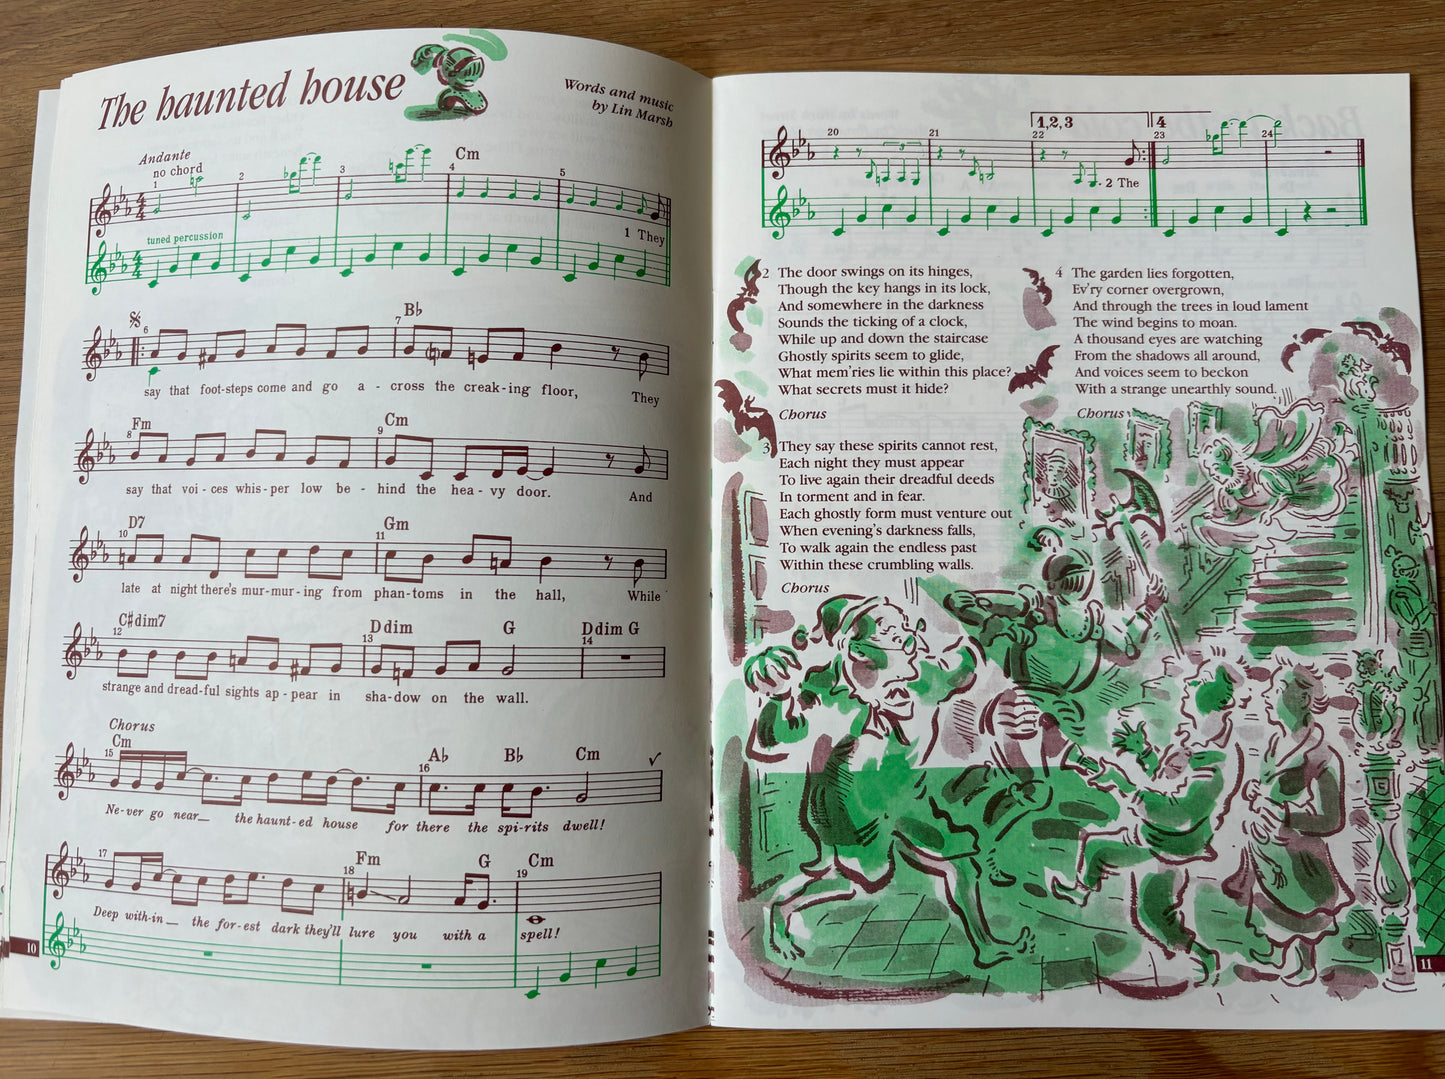 The haunted house
Words and music
by Lin Marsh
Andante
no chord
Cm
1 2 3 4 5
tuned percussion
1 They
B♭
6 7
say that foot-steps come and go a - cross the creak-ing floor, They
Fm Cm
8 9
say that voi - ces whis-per low be - hind the hea - vy door. And
D7 Gm
10 11
late at night there's mur-mur-ing from phan-toms in the hall, While
C♯dim7 Ddim G Ddim G
12 13 14
strange and dread-ful sights ap - pear in sha-dow on the wall.
Chorus
Cm A♭ B♭ Cm
15 16
Ne-ver go near__ the haunt-ed house for there the spi-rits dwell!
17 Fm G Cm
18 19
Deep with-in__ the for-est dark they'll lure you with a spell!
10
1,2,3 4
20 21 22 23 24
2 The
2 The door swings on its hinges,
Though the key hangs in its lock,
And somewhere in the darkness
Sounds the ticking of a clock,
While up and down the staircase
Ghostly spirits seem to glide,
What mem'ries lie within this place?
What secrets must it hide?
Chorus
3 They say these spirits cannot rest,
Each night they must appear
To live again their dreadful deeds
In torment and in fear.
Each ghostly form must venture out
When evening's darkness falls,
To walk again the endless past
Within these crumbling walls.
Chorus
4 The garden lies forgotten,
Ev'ry corner overgrown,
And through the trees in loud lament
The wind begins to moan.
A thousand eyes are watching
From the shadows all around,
And voices seem to beckon
With a strange unearthly sound.
Chorus
11